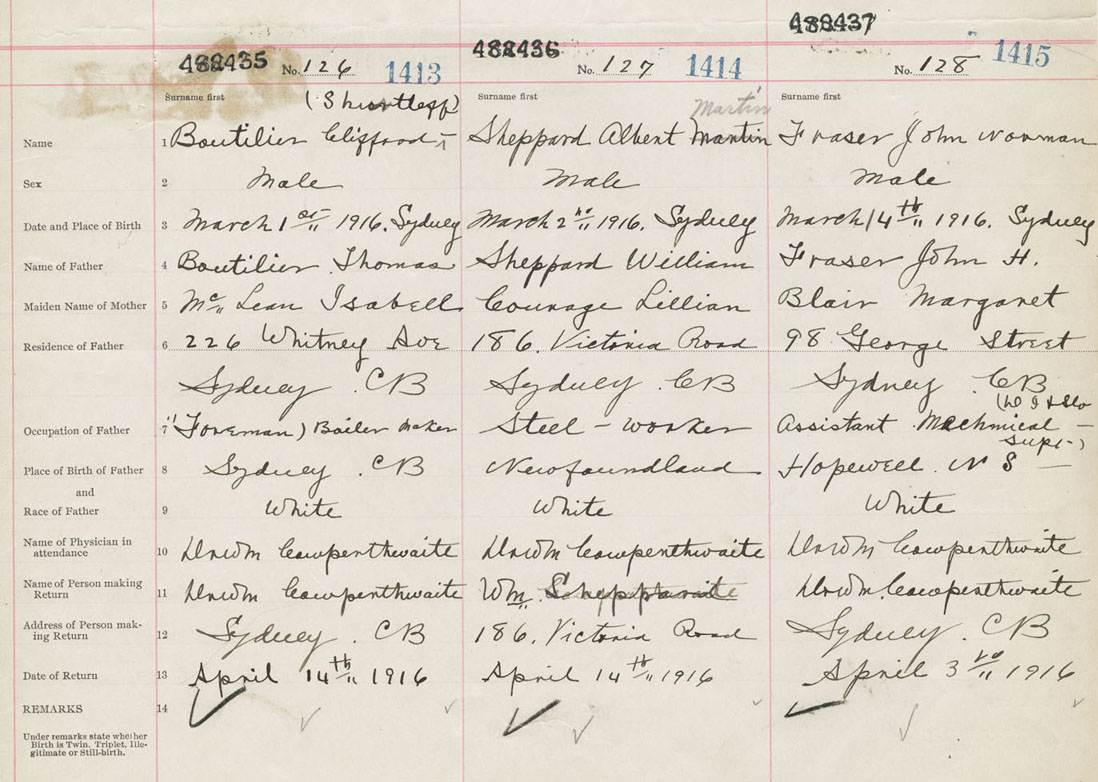 482435 482436 482437
No. 126 1413 No. 127 1414 No. 128 1415
Surname first (Shurtleff) Surname first Martin Surname first
Name 1 Boutilier Clifford Sheppard Albert Martin Fraser John Norman
Sex 2 Male Male Male
Date and Place of Birth 3 March 1st 1916. Sydney March 2nd 1916. Sydney March 14th 1916. Sydney
Name of Father 4 Boutilier Thomas Sheppard William Fraser John H.
Maiden Name of Mother 5 Mc Lean Isabell Courage Lillian Blair Margaret
Residence of Father 6 226 Whitney Ave 186. Victoria Road 98 George Street
Sydney. CB Sydney. CB Sydney. CB
Occupation of Father 7 "Foreman) Boiler maker Steel - worker Assistant Mechinical - Supt-)
Place of Birth of Father 8 Sydney. CB Newfoundland Hopewell. N S —
and
Race of Father 9 White White White
Name of Physician in
attendance 10 Wm Cowperthwaite Wm Cowperthwaite Wm Cowperthwaite
Name of Person making
Return 11 Wm Cowperthwaite Wm. Sheppard Wm. Cowperthwaite
Address of Person mak-
ing Return 12 Sydney. CB 186. Victoria Road Sydney. CB
Date of Return 13 April 14th 1916 April 14th 1916 April 3rd 1916
REMARKS 14
Under remarks state whether
Birth is Twin, Triplet, Ille-
gitimate or Still-birth.